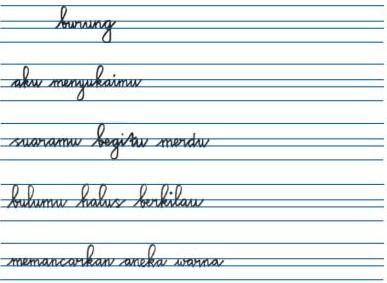 burung
aku menyukaimu
suaramu begitu merdu
bulumu halus berkilau
memancarkan aneka warna